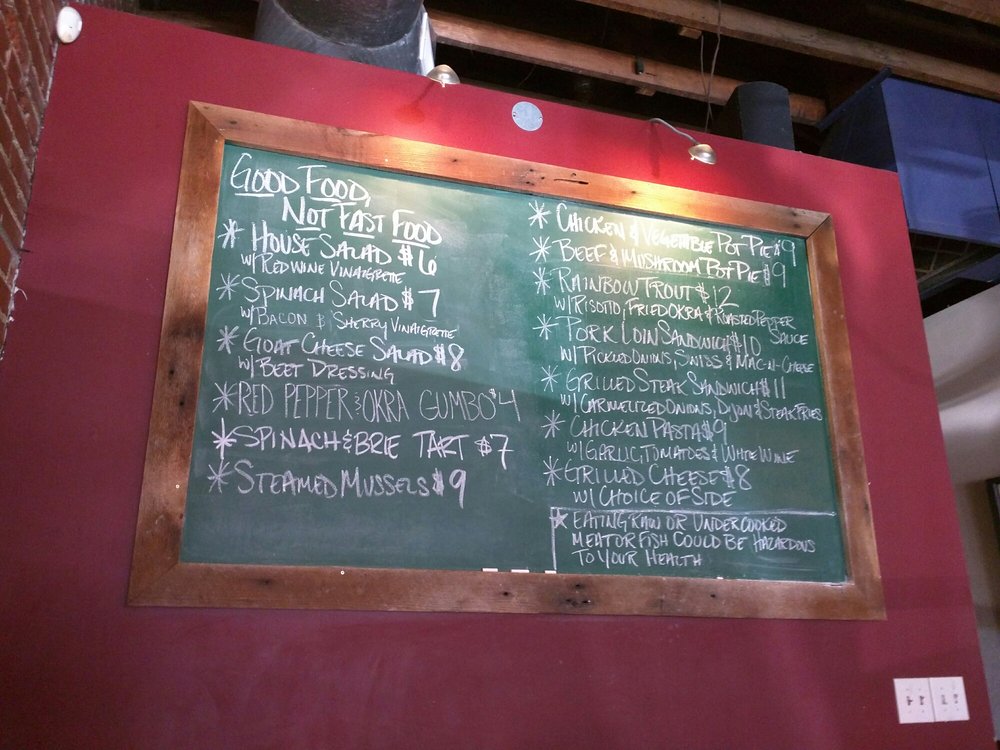 GOOD FOOD,
NOT FAST FOOD
* HOUSE SALAD $6
W/ RED WINE VINAIGRETTE
* SPINACH SALAD $7
W/ BACON & SHERRY VINAIGRETTE
* GOAT CHEESE SALAD $8
W/ BEET DRESSING
* RED PEPPER & OKRA GUMBO $4
* SPINACH & BRIE TART $7
* STEAMED MUSSELS $9
* CHICKEN & VEGETABLE POT PIE $9
* BEEF & MUSHROOM POT PIE $9
* RAINBOW TROUT $12
W/ RISOTTO, FRIED OKRA & ROASTED PEPPER
SAUCE
* PORK LOIN SANDWICH $10
W/ PICKLED ONIONS, SWISS & MAC-N-CHEESE
* GRILLED STEAK SANDWICH $11
W/ CARMELIZED ONIONS, DIJON & STEAK FRIES
* CHICKEN PASTA $9
W/ GARLIC TOMATOES & WHITE WINE
* GRILLED CHEESE $8
W/ CHOICE OF SIDE
* EATING RAW OR UNDERCOOKED
MEAT OR FISH COULD BE HAZARDOUS
TO YOUR HEALTH